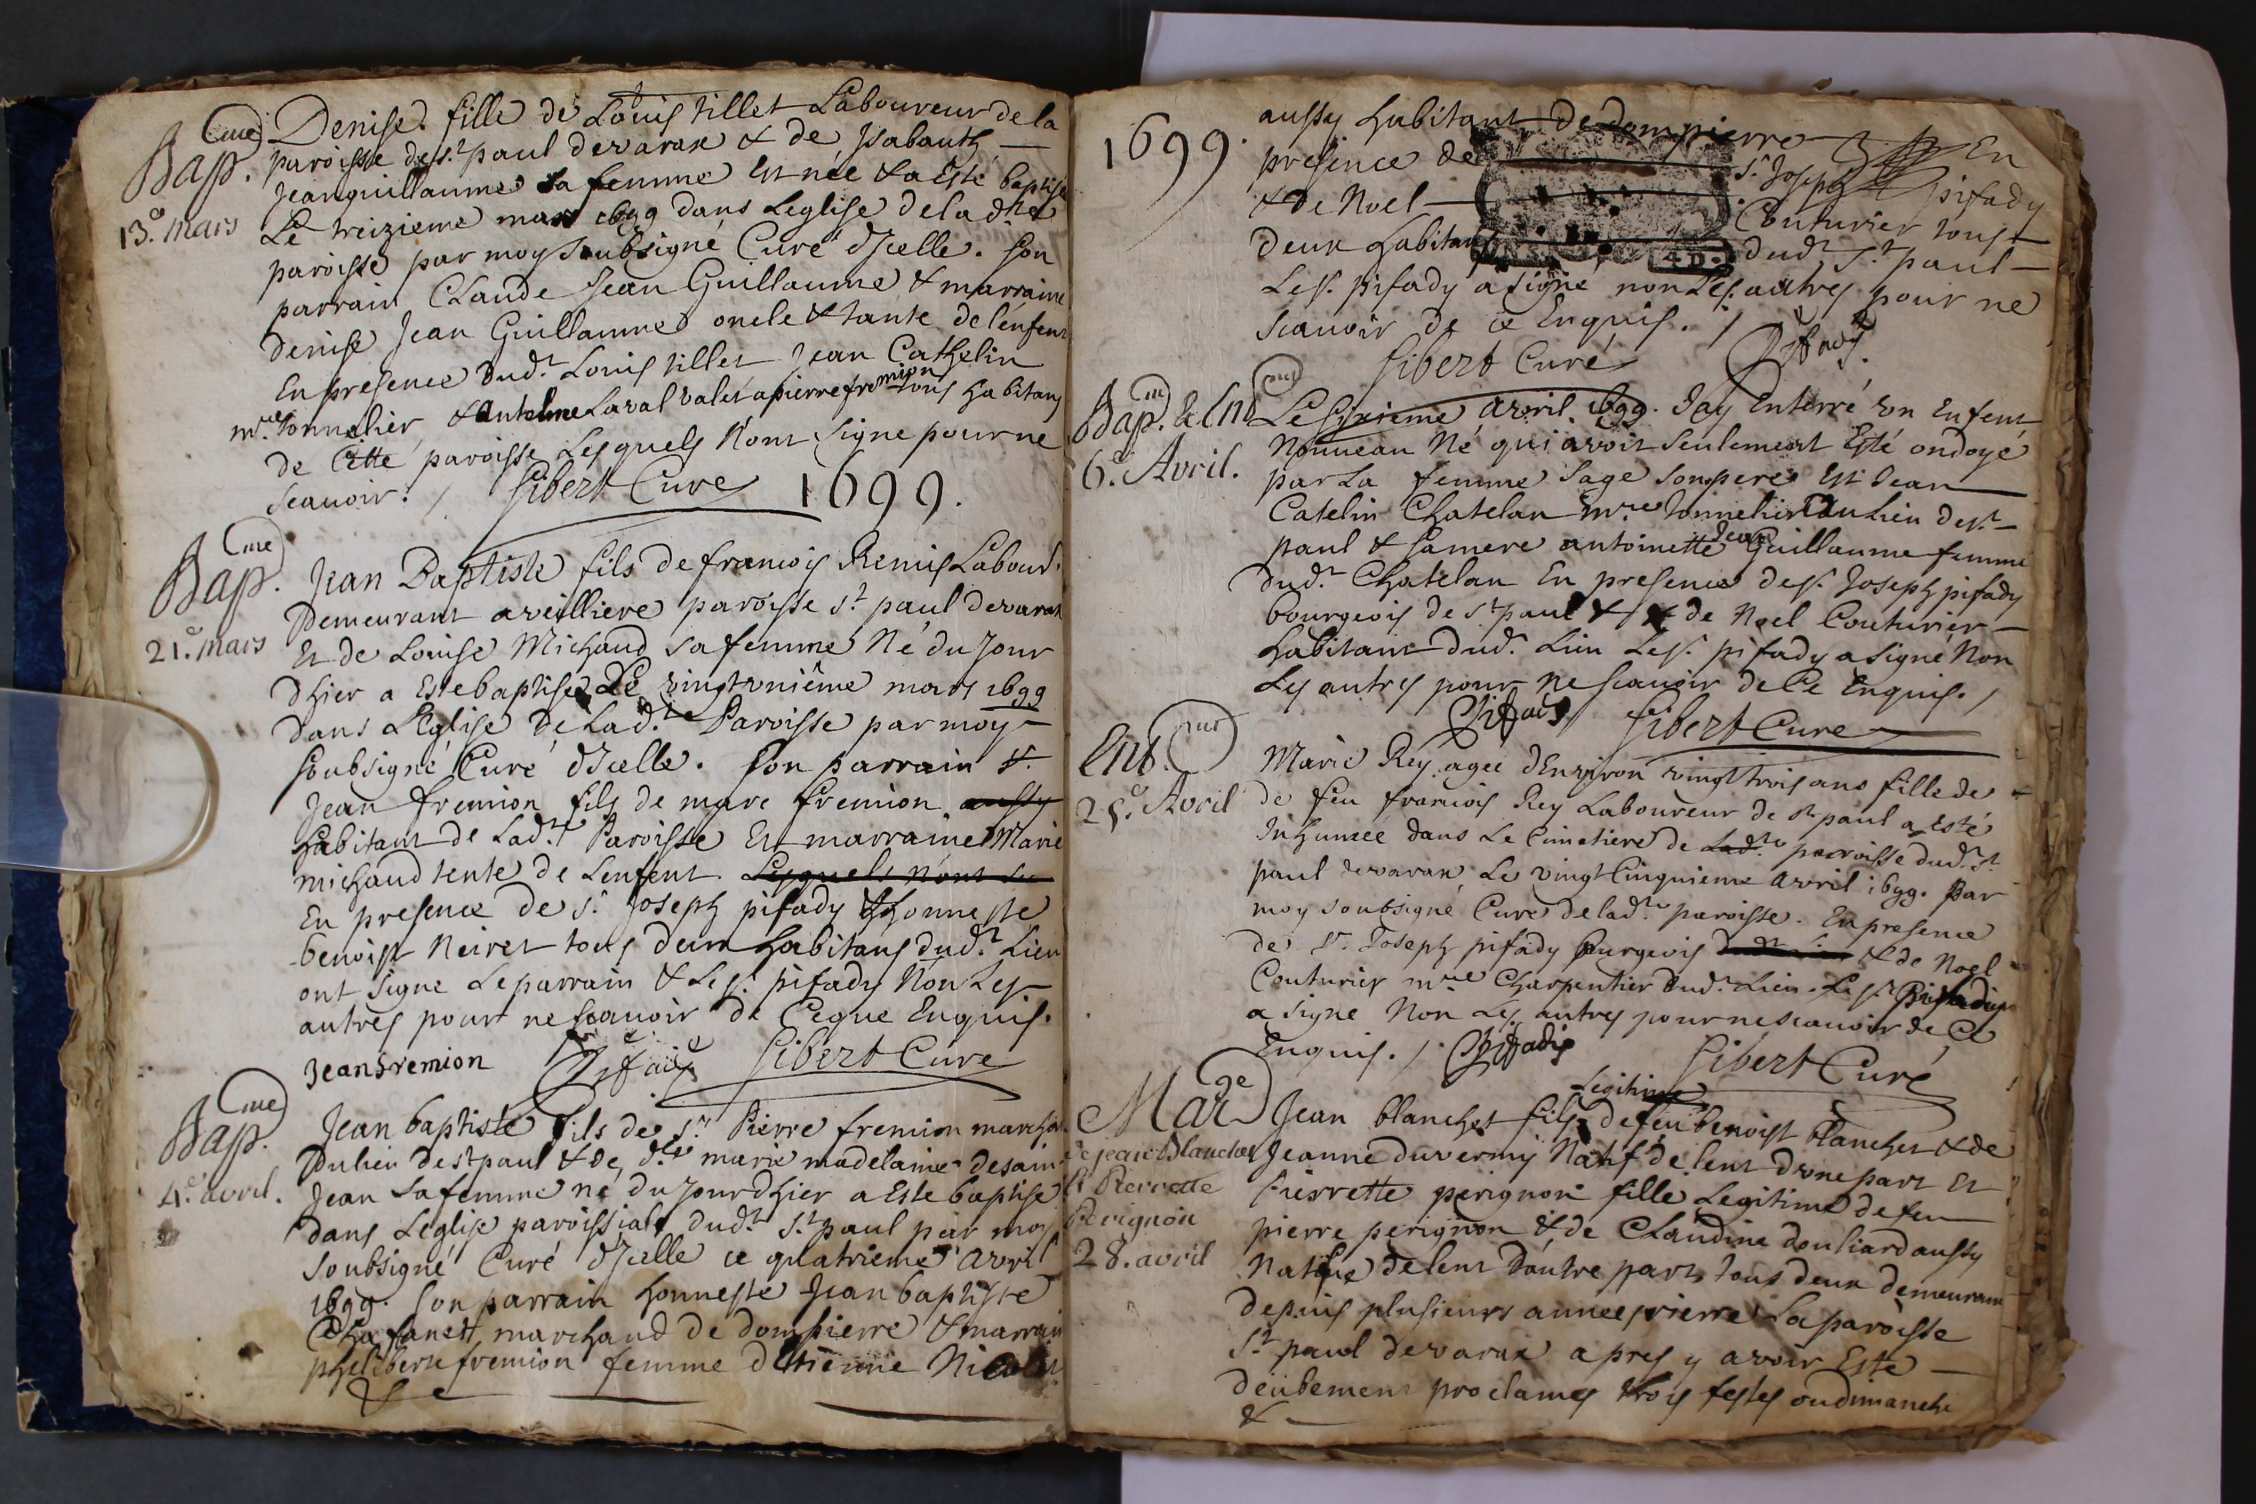 Bap.me Denise fille de Louis tillet Laboureur de la
paroisse de st. paul devarax & de Jsabauth
Jeanguillaume sa femme Est née & a Esté baptisé
13.e mars
Le treizieme mars 1699 dans Leglise de la dite
paroisse par moy soubsigné Curé d'Jcelle. son
parrain Claude Jean Guillaume & marraine
denise Jean Guillaume oncle & tante de lenfent
En presence dud.t Louis tillet Jean Cathelin
m.re tonnelier & Antelme Laval valet a pierre fremion tous habitans
de Cette paroisse Lesquels n'ont signe pour ne
scauoir. / Gibert Curé 1699.
Bap.me
21.e mars
Jean Baptiste fils de francois Remis Labour.
Demeurant a veilliere paroisse st. paul devarax
Et de Louise Michaud sa femme Né du Jour
dhier a Esté baptisé Le vingtvniême mars 1699
dans L'Eglise de Lad.te Paroisse par moy
soubsigné Curé d'Jcelle. son parrain s.r
Jean fremion fils de marc fremion aussy
habitant de Lad.te Paroisse Et marraine Marie
michaud tente de Lenfent Lesquels n'ont su
En presence de s.r Joseph pifady & honneste
benoist Neiret tous deux habitans dud.t Lieu
ont signe Le parrain & Le s.r pifady Non Les
autres pour ne scauoir de Ceque Enquis.
Jean fremion Pifadÿ Gibert Curé
Bap.me
4.e avril.
Jean baptiste fils de s.r Pierre fremion marchan
du lieu de st paul & de d.lle marie madelaine desaint
Jean sa femme né du Jour dhier a Esté baptisé
dans Leglise paroissiale dud.t st. paul par moy
soubsigné Curé d'Jcelle ce quatrieme avril
1699. son parrain honneste Jean baptiste
Chafanet marchand de dompierre & marrain
philiberte fremion femme d'Etienne Nicolet
&
1699.
aussy habitant de dompierre En
presence de s.r Joseph pifady
& de Noel Couturier tous
deux habitans dud.t st. paul
Le s.r pifady a signé non Les autres pour ne
scauoir de ce Enquis. /
Gibert Curé Pifady
Bap.me & En.t
6.e Avril.
Le sixieme avril 1699. Jay Enterré vn Enfent
Nouveau Né qui avoit seulement Esté ondoyé
par La femme sage son pere Est Jean
Catelin Chatelan m.re tonnelier du Lieu de st.
paul & sa mere antoinette Jean Guillaume femme
dud.t Chatelan En presence de s.r Joseph pifady
bourgeois de st. paul & & de Noel Couturier
habitant dud.t Lieu Le s.r pifady a signé Non
Les autres pour ne scauoir de Ce Enquis. /
Pifady Gibert Curé
Ent.
25.e Avril
Marie Rey agée d'Environ vingt trois ans fille de
de feu francois Rey Laboureur de st paul a Esté
Jnhumée dans Le Cimetiere de Lad.te paroisse dud.t st.
paul devarax Le vingt Cinquieme avril 1699. Par
moy soubsigné Curé de lad.te paroisse. En presence
de s.r Joseph pifady bourgeois & de Noel
Couturier m.re Charpentier dud.t Lieu. Le s.r Pifady
a signe Non Les autres pour ne scauoir de Ce
Enquis. /. Pifady
Gibert Curé
Mar.ge
de jean Blanchet
Et Pierrette
Perignon
28. avril
Legitime
Jean blanchet fils de feu benoist blanchet & de
Jeanne duvernij Natif de lent d'vne part Et
Pierrette perignon fille Legitime de feu
pierre perignon & de Claudine douliard aussy
Native de lent D'autre part, tous deux demeurant
depuis plusieurs annees rierre La paroisse
st. paul devarax apres y avoir Esté
deubement proclamés trois festes ou dimanche
&